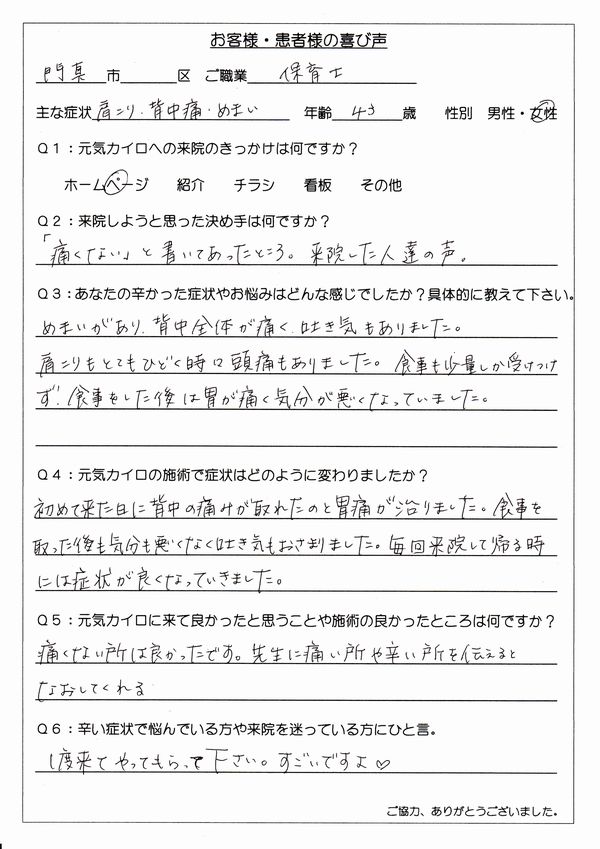 お客様・患者様の喜び声
門真市 区 ご職業 保育士
主な症状 肩こり・背中痛・めまい 年齢 43 歳 性別 男性・女性
Q1：元気カイロへの来院のきっかけは何ですか？
ホームページ 紹介 チラシ 看板 その他
Q2：来院しようと思った決め手は何ですか？
「痛くない」と書いてあったところ。来院した人達の声。
Q3：あなたの辛かった症状やお悩みはどんな感じでしたか？具体的に教えて下さい。
めまいがあり、背中全体が痛く、吐き気もありました。
肩こりもとてもひどく時に頭痛もありました。食事も少量しか受けつけ
ず、食事をした後は胃が痛く気分が悪くなっていました。
Q4：元気カイロの施術で症状はどのように変わりましたか？
初めて来た日に背中の痛みが取れたのと胃痛が治りました。食事を
取った後も気分も悪くなく吐き気もおさまりました。毎回来院して帰る時
には症状が良くなっていきました。
Q5：元気カイロに来て良かったと思うことや施術の良かったところは何ですか？
痛くない所は良かったです。先生に痛い所や辛い所を伝えると
なおしてくれる
Q6：辛い症状で悩んでいる方や来院を迷っている方にひと言。
1度来てやってもらって下さい。すごいですよ♡
ご協力、ありがとうございました。